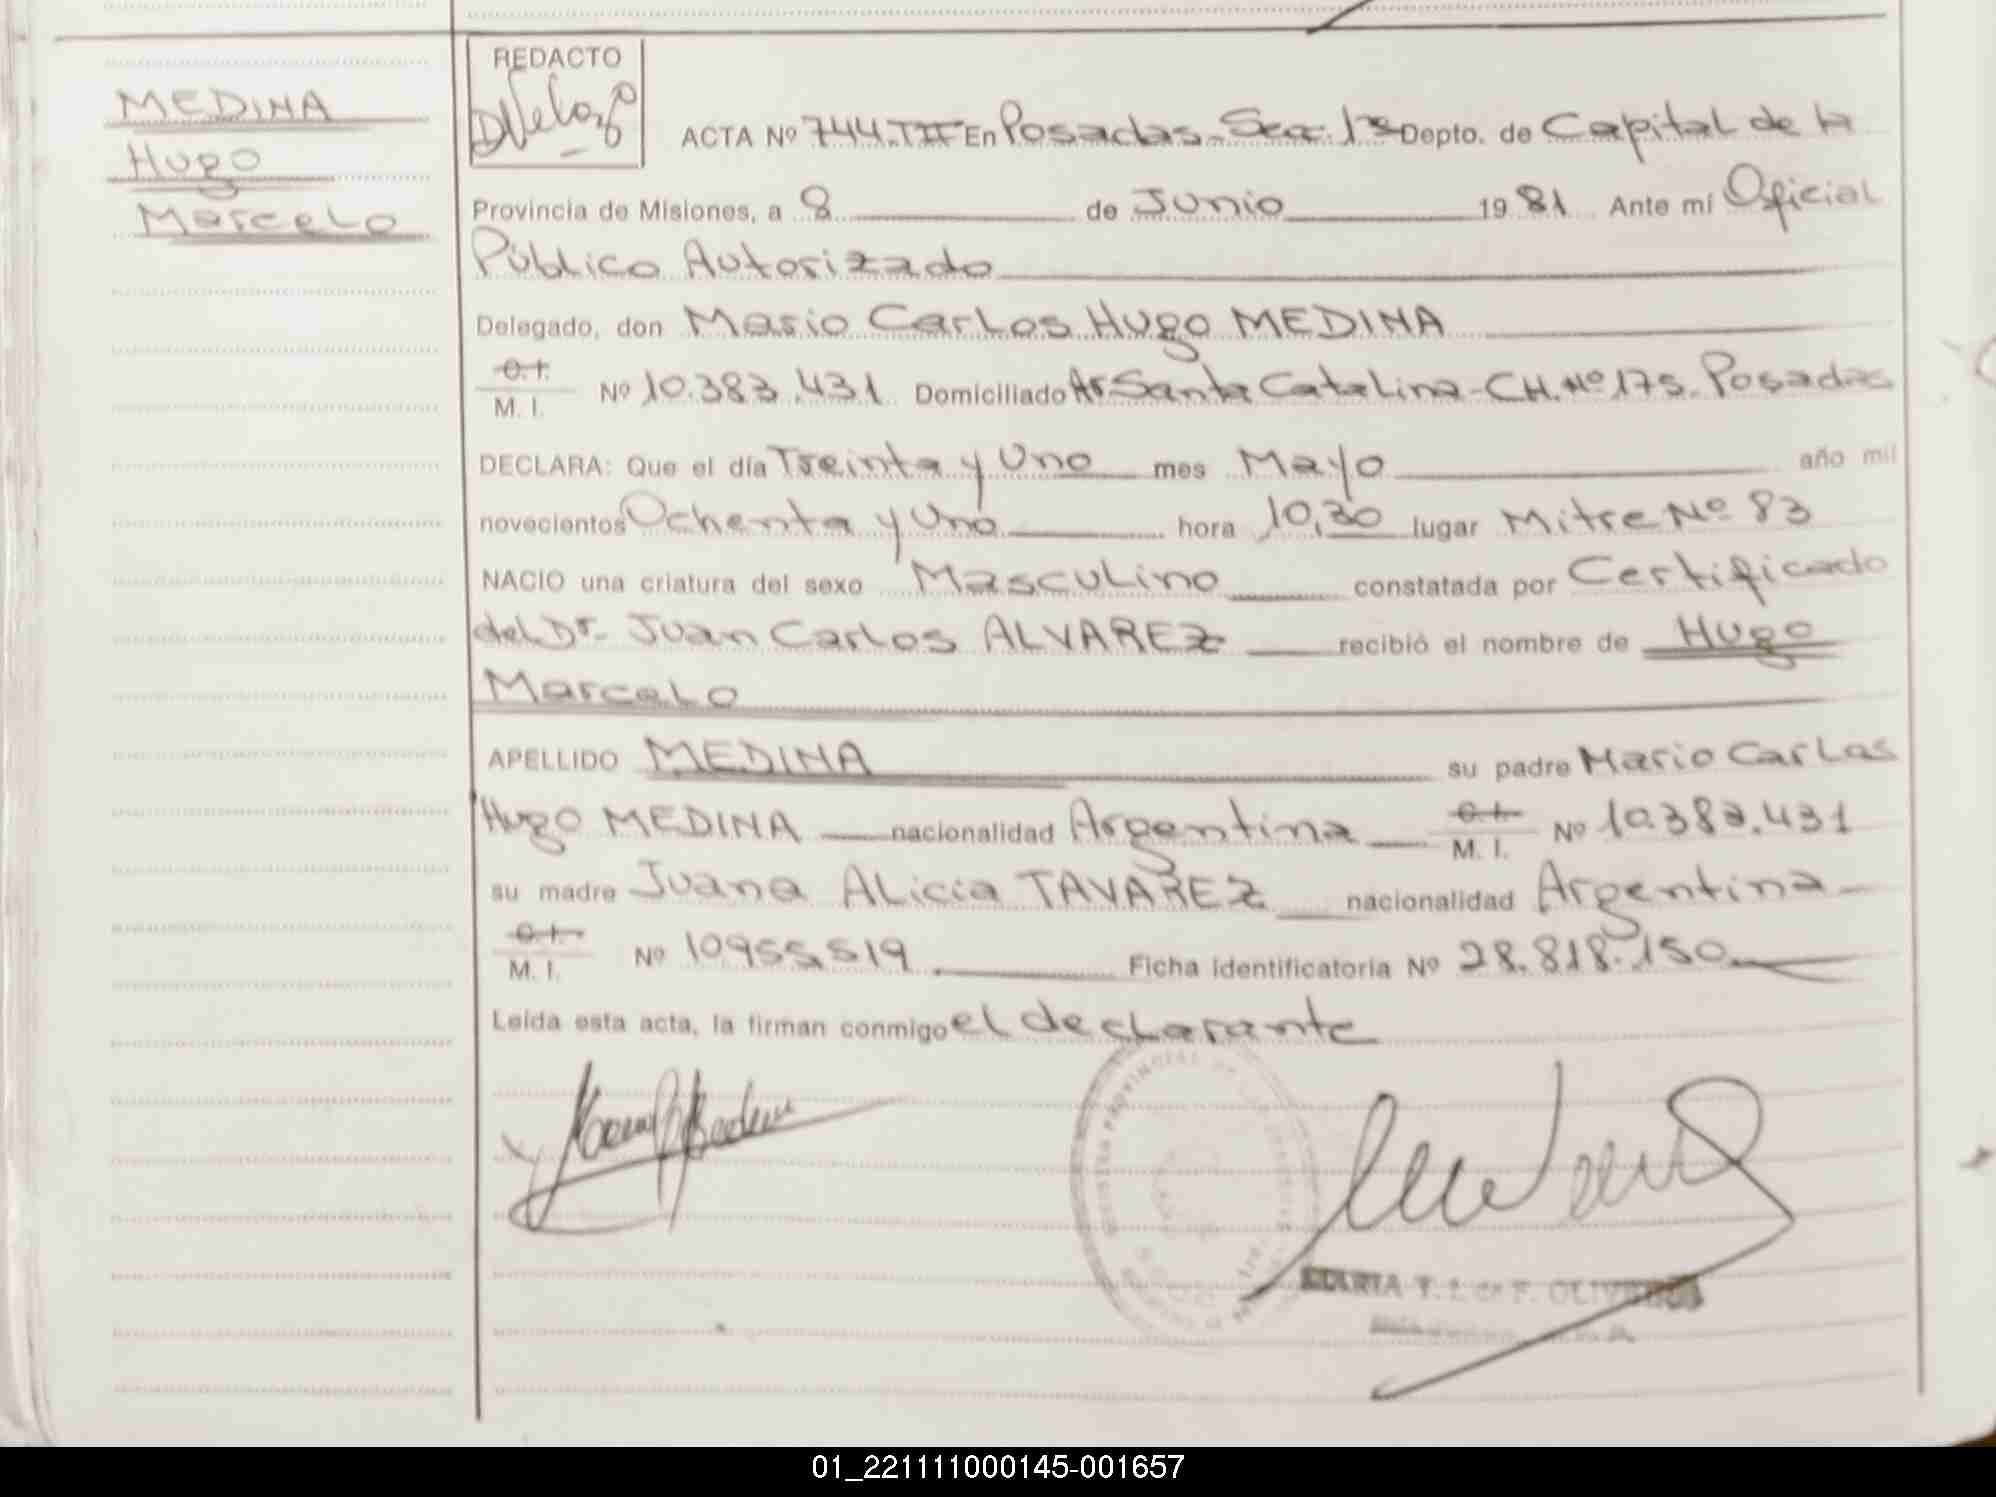 MEDINA
Hugo
Marcelo
REDACTO
ACTA Nº 744.TII En Posadas-Sec. 1ª Depto. de Capital de la
Provincia de Misiones, a 8 de Junio 1981 Ante mí Oficial
Público Autorizado
Delegado, don Mario Carlos Hugo MEDINA
C.I.
M. I. Nº 10.383.431 Domiciliado Av Santa Catalina-CH.Nº 175. Posadas
DECLARA: Que el día Treinta y Uno mes Mayo año mil
novecientos Ochenta y Uno hora 10,30 lugar Mitre Nº 83
NACIO una criatura del sexo Masculino constatada por Certificado
del Dr. Juan Carlos ALVAREZ recibió el nombre de Hugo
Marcelo
APELLIDO MEDINA su padre Mario Carlos
Hugo MEDINA nacionalidad Argentina C.I. M. I. Nº 10.383.431
su madre Juana Alicia TAVAREZ nacionalidad Argentina
C.I.
M. I. Nº 10955.519 Ficha identificatoria Nº 28.818.150
Leída esta acta, la firman conmigo el declarante
REGISTRO PROVINCIAL DE LAS PERSONAS
MARIA T. I. de F. OLIVEIRA
01_221111000145-001657